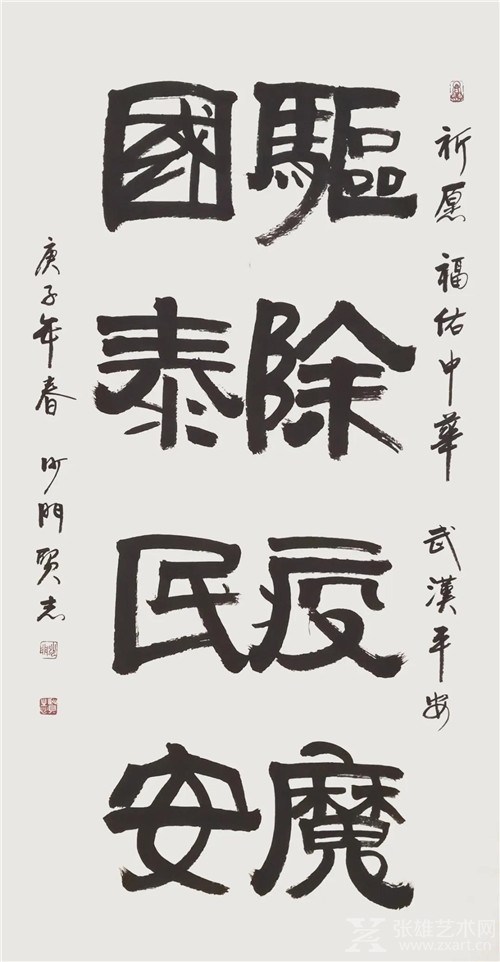 祈愿福佑中華 武漢平安
驅除疫魔
國泰民安
庚子年春 沙門賢志
张雄艺术网
www.zxart.cn